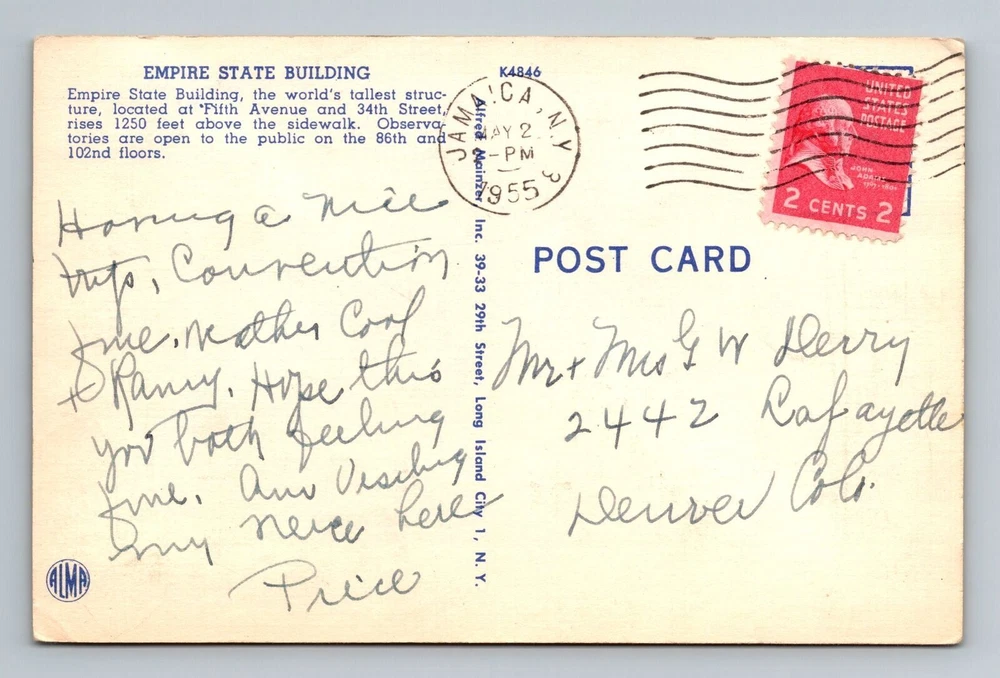 EMPIRE STATE BUILDING
Empire State Building, the world's tallest struc-
ture, located at Fifth Avenue and 34th Street,
rises 1250 feet above the sidewalk. Observa-
tories are open to the public on the 86th and
102nd floors.
Having a nice
trip, Convention
fine. Weather Cool
+ Rainy. Hope this
you both feeling
fine. Am Visiting
my niece here
Price
ALMA
K4846
Alfred Mainzer Inc. 39-33 29th Street, Long Island City 1, N. Y.
JAMAICA, N.Y. 3
MAY 2
PM
1955
UNITED
STATES
POSTAGE
JOHN
ADAMS
2 CENTS 2
POST CARD
Mr + Mrs G W Derry
2442 Lafayette
Denver Colo.